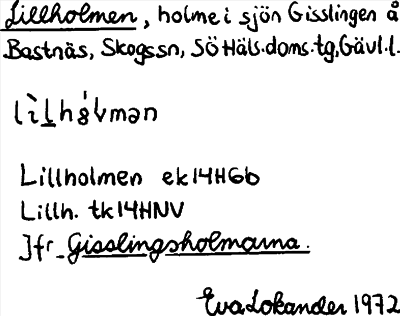 Lillholmen, holme i sjön Gisslingen å
Bastnäs, Skogssn, SöHäls.doms.tg, Gävl.l.
Lillholmen ek14H6b
Lillh. tk14HNV
Jfr Gisslingsholmarna.
Eva Lokander 1972